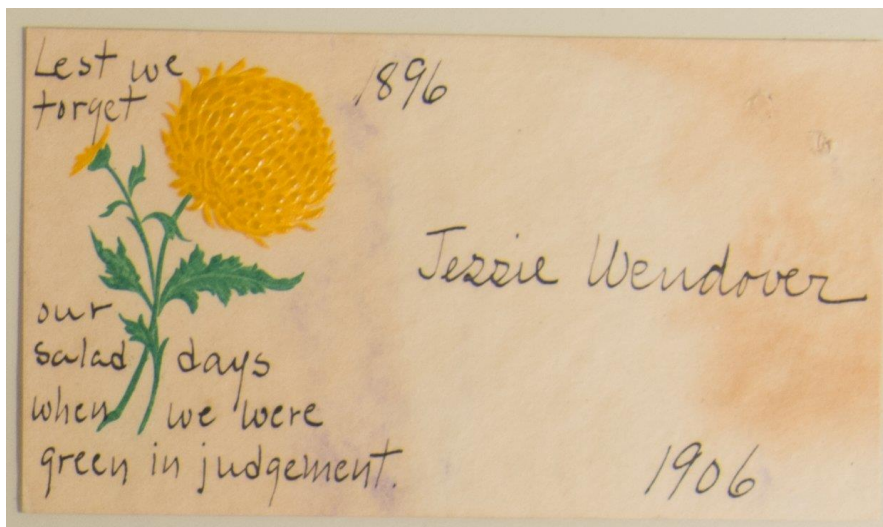 Lest we
forget
1896
Jessie Wendover
our
salad days
when we were
green in judgement.
1906